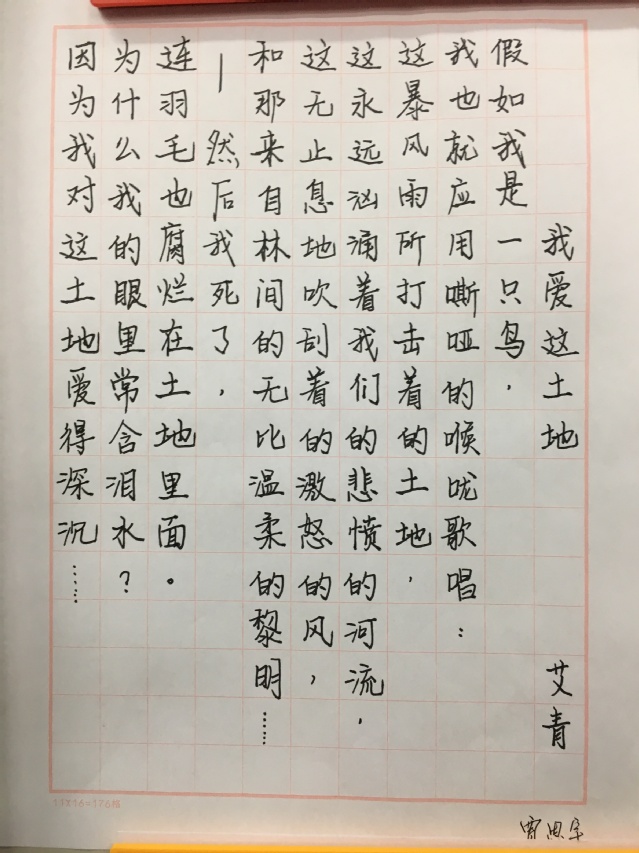 我爱这土地 艾青
假如我是一只鸟，
我也就应用嘶哑的喉咙歌唱：
这暴风雨所打击着的土地，
这永远汹涌着我们的悲愤的河流，
这无止息地吹刮着的激怒的风，
和那来自林间的无比温柔的黎明……
—然后我死了，
连羽毛也腐烂在土地里面。
为什么我的眼里常含泪水？
因为我对这土地爱得深沉……
11X16=176格